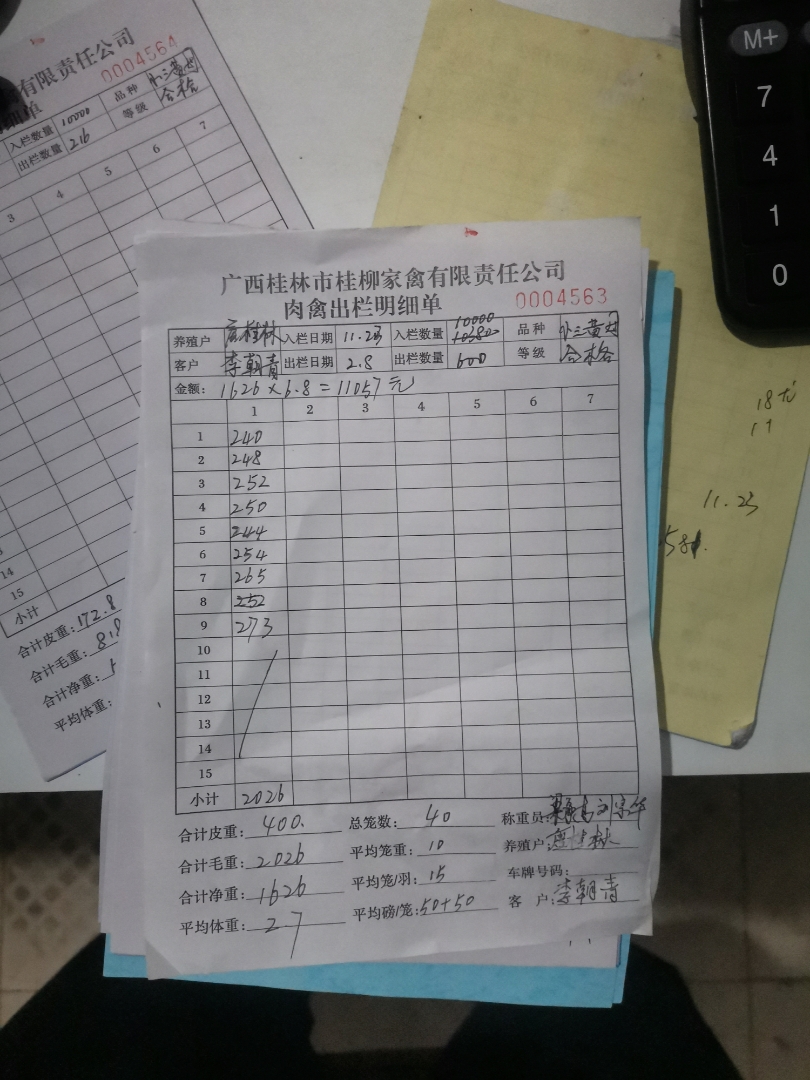 有限责任公司
0004564
细单
入栏数量 10000 品种
出栏数量 216 等级 合格
3 4 5 6 7
14
15
小计
合计皮重: 172.8
合计毛重: 818
合计净重:
平均体重:
M+
7
4
1
0
18元
11
11.23
581.
广西桂林市桂柳家禽有限责任公司
肉禽出栏明细单 0004563
养殖户 入栏日期 11.23 入栏数量 10000 品种 小三黄
客户 李朝青 出栏日期 2.8 出栏数量 600 等级 合格
金额: 1626×6.8=11057元
1 2 3 4 5 6 7
1 240
2 248
3 252
4 250
5 244
6 254
7 265
8 252
9 273
10
11
12
13
14
15
小计 2026
合计皮重: 400. 总笼数: 40 称重员:
合计毛重: 2026 平均笼重: 10 养殖户:
合计净重: 1626 平均笼/羽: 15 车牌号码:
平均体重: 27 平均磅/笼: 50+50 客 户: 李朝青